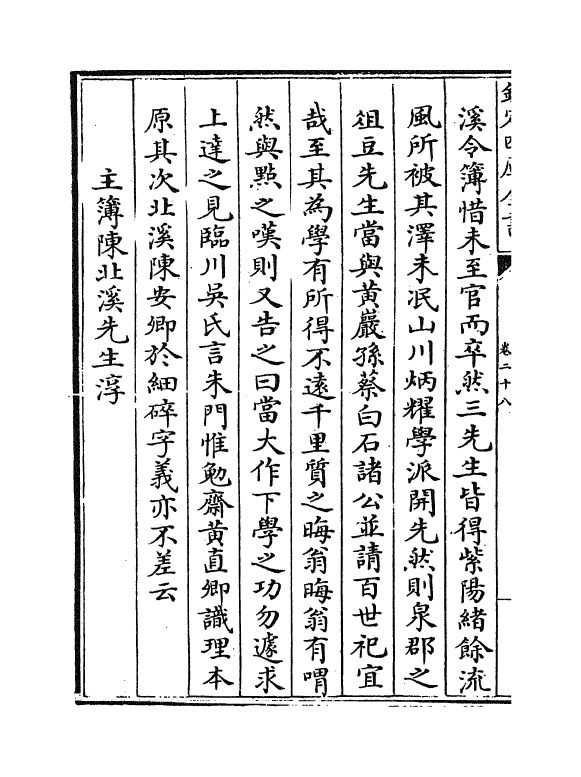 欽定四庫全書
卷二十八
溪令簿惜未至官而卒然三先生皆得紫陽緒餘流
風所被其澤未泯山川炳耀學派開先然則泉郡之
俎豆先生當與黃巖孫蔡白石諸公並請百世祀宜
哉至其為學有所得不遠千里質之晦翁晦翁有喟
然與點之嘆則又告之曰當大作下學之功勿遽求
上達之見臨川吳氏言朱門惟勉齋黃直卿識理本
原其次北溪陳安卿於細碎字義亦不差云
主簿陳北溪先生淳